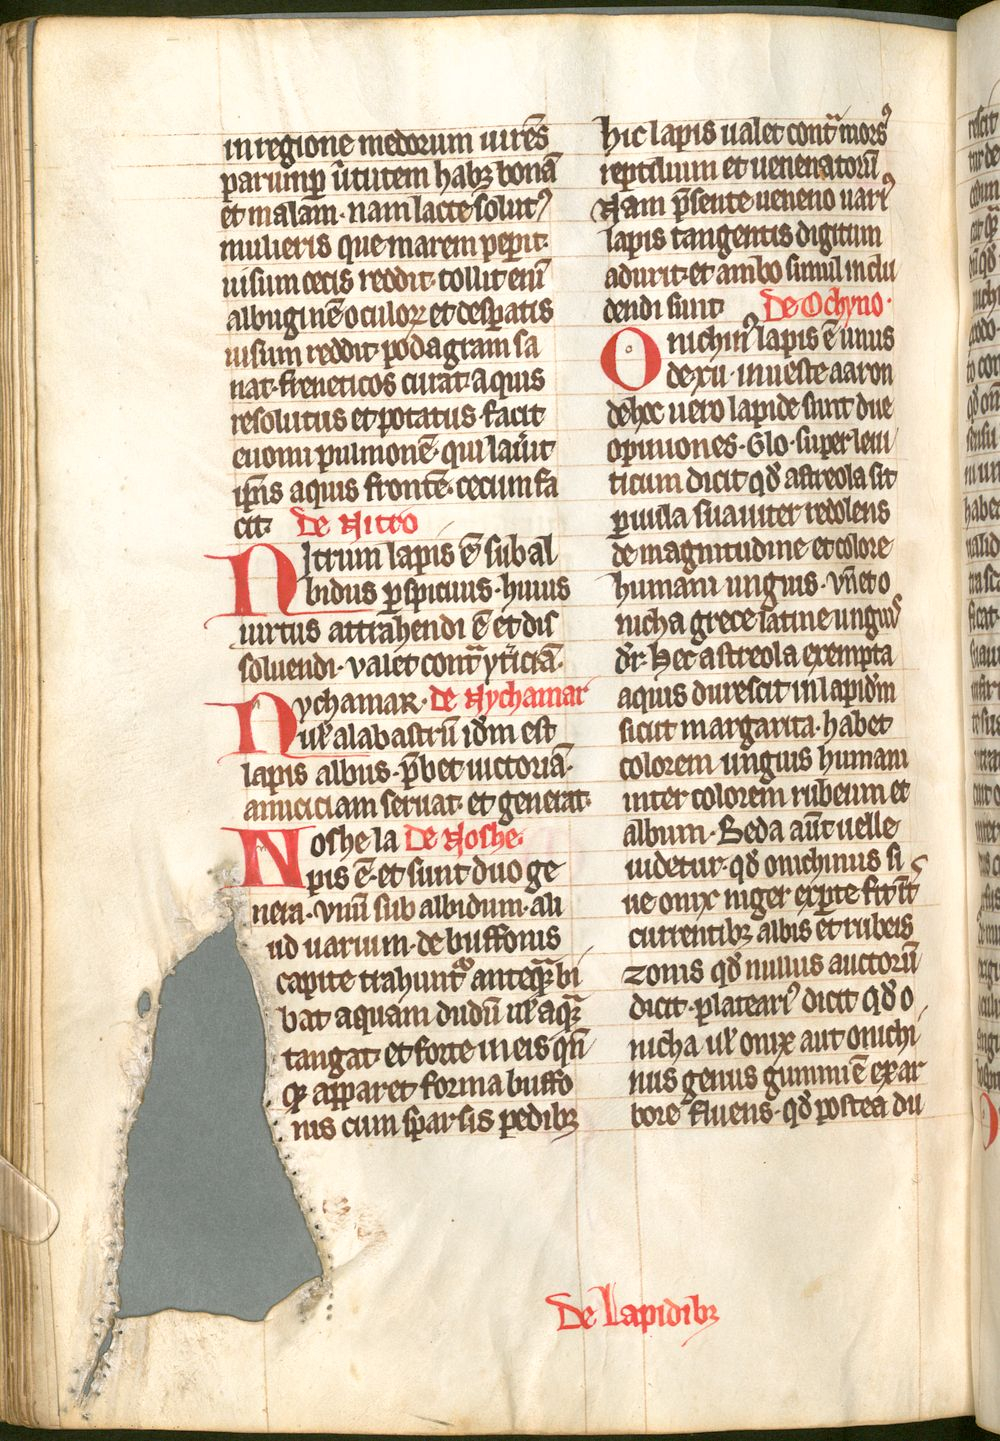 in regione medorum uirẽs
parump̱ ũtutem habꝫ bonã
et malam· nam lacte solutꝰ
mulieris que marem peperit·
uisum cecis reddit· tollit enĩ
albuginẽ oculoꝝ et desp̱atis
uisum reddit· podagram sa
nat· freneticos curat· aquis
resolutus et potatus facit
euomi pulmonẽ· qui lauĩt
ip̃ius aquis frontẽ· cecum fa
cit· De Nitro
Nitrum lapis ẽ sub al
bidus p̱spicuus· huius
uirtus attrahendi ẽ et dis
soluendi· valet cont̃ yt̃iciã·
Nychamar· de Nychamar
ul̃ alabastrũ id̃m est
lapis albus· p̃bet uictoriã·
amiciciam seruat· et generat·
Noshe la De Noshe·
pis ẽ· et sunt duo ge
nera· vnũ sub albidum· ali
ud uarium· de buffonis
capite trahunt᷑ anteqᷓ bi
bat aquam dudũ ul̃ aqᷓ
tangat· et forte in eis qñ
qꝫ apparet forma buffo
nis cum sparsis pedibꝫ
hic lapis ualet cont̃ morsꝰ
reptilium et uenenatorũ
Nam p̃sente ueneno uariꝰ
lapis tangentis digitum
adurit· et ambo simul inclu
dendi sunt De Ochyno·
Onichinꝰ lapis ẽ unus
de xii· in ueste aaron
de hoc uero lapide sunt due
opiniones· Glo· super leui
ticum dicit qd̃ astreola sit
p̱uula suauiter redolens
de magnitudine et colore
humani unguis· vñ et o
nicha grece latine unguis
dr̃· Hec astreola exempta
aquis durescit in lapid̃m
sicut margarita· habet
colorem unguis humani
inter colorem rubeum et
album· Beda aũt uelle
uidetur· qd̃ onichinus si
ue onix niger
currentibꝫ albis et rubeis
zonis qd̃ nullus auctorũ
dicit· plateariꝰ dicit qd̃ o
nicha ul̃ onix aut onichi
nus genus gummi ẽ ex ar
bore fluens· qd̃ postea du
De Lapidibꝫ